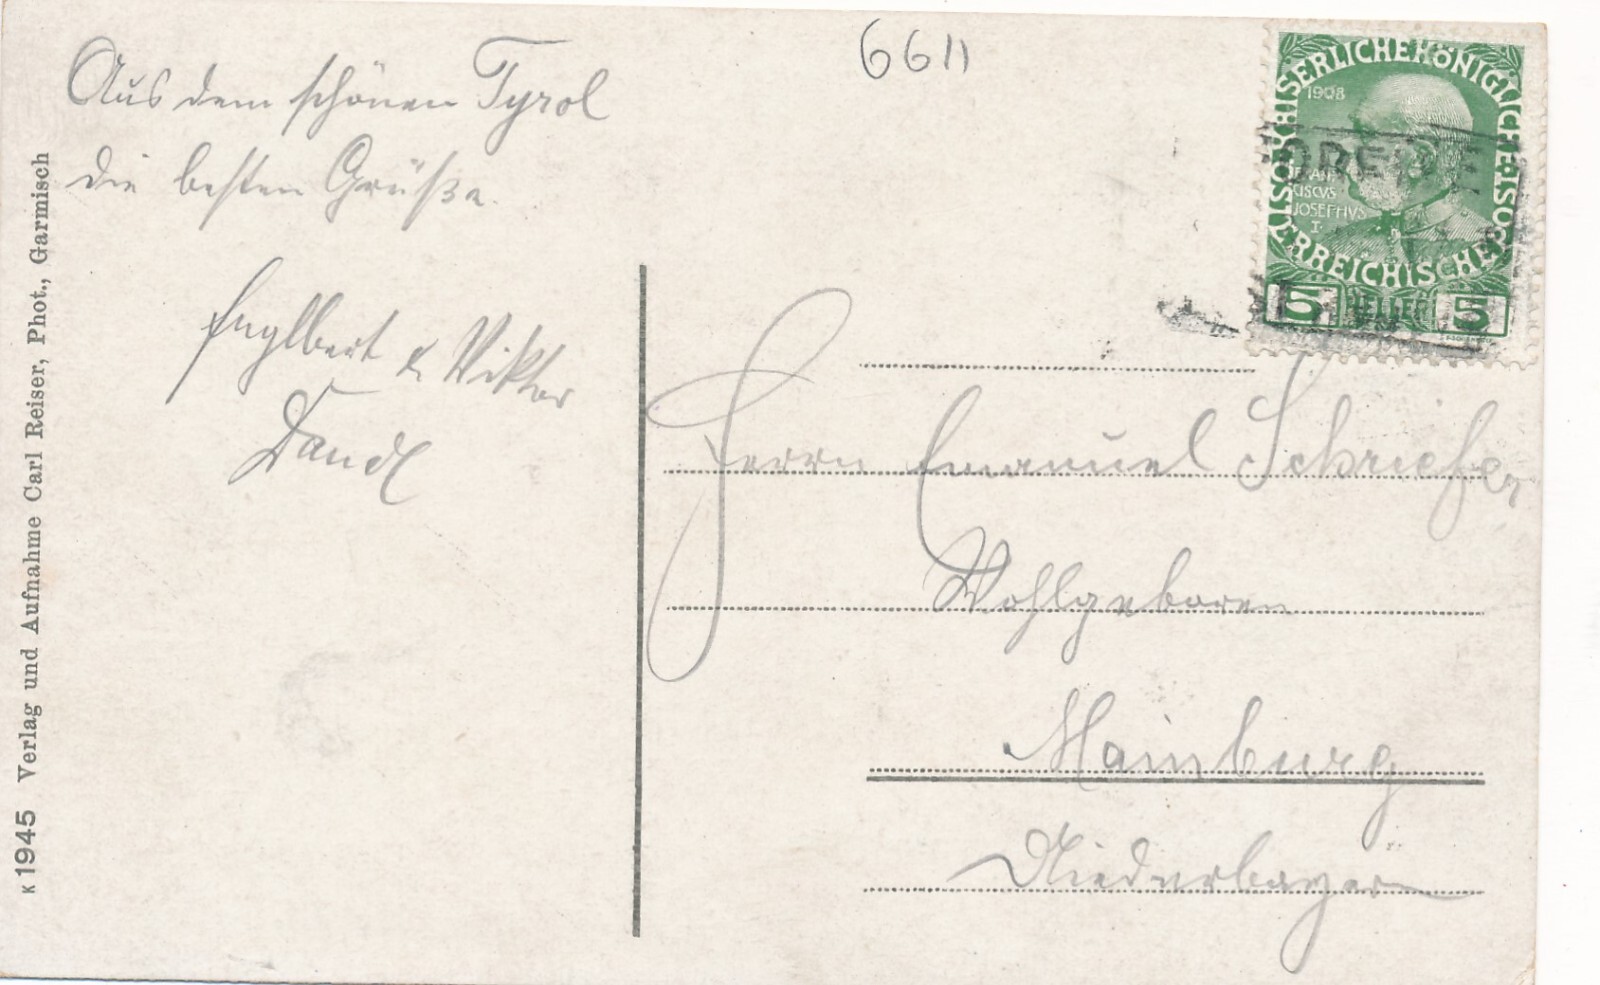 Aus dem schönen Tyrol
die besten Grüße.
Englbert & Viktor
Dandl
6611
KAISERLICHE KÖNIGLICHE ÖSTERREICHISCHE POST
1908
FRANCISCVS
JOSEPHVS
I.
5 HELLER 5
Herrn Emanuel Schriefer
Wohlgeboren
Mainburg
Niederbayern
K 1945 Verlag und Aufnahme Carl Reiser, Phot., Garmisch